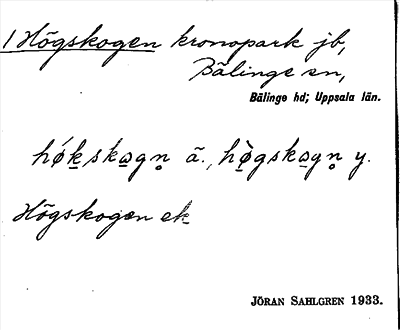 1 Högskogen kronopark jb,
Bälinge sn,
Bälinge hd; Uppsala län.
hǿk̲sko̲gn̥ ä., hø̲̀gsko̲gn̥ y.
Högskogen ek
JÖRAN SAHLGREN 1933.